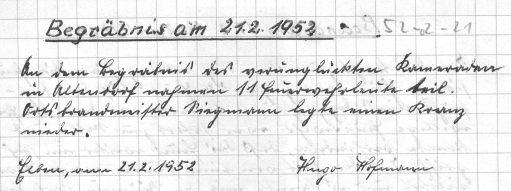 Begräbnis am 21.2.1952. 52-2-21
An dem Begräbnis des verunglückten Kameraden
in Altendorf nahmen 11 Feuerwehrleute teil.
Ortsbrandmeister Siegmann legte einen Kranz
nieder.
Elben, am 21.2.1952 Hugo Hofmann